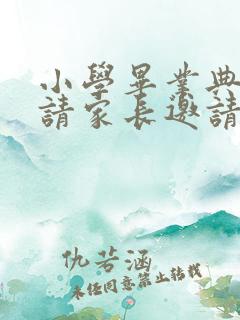 小學畢業典
請家長邀請
仇若涵
未经同意禁止转载